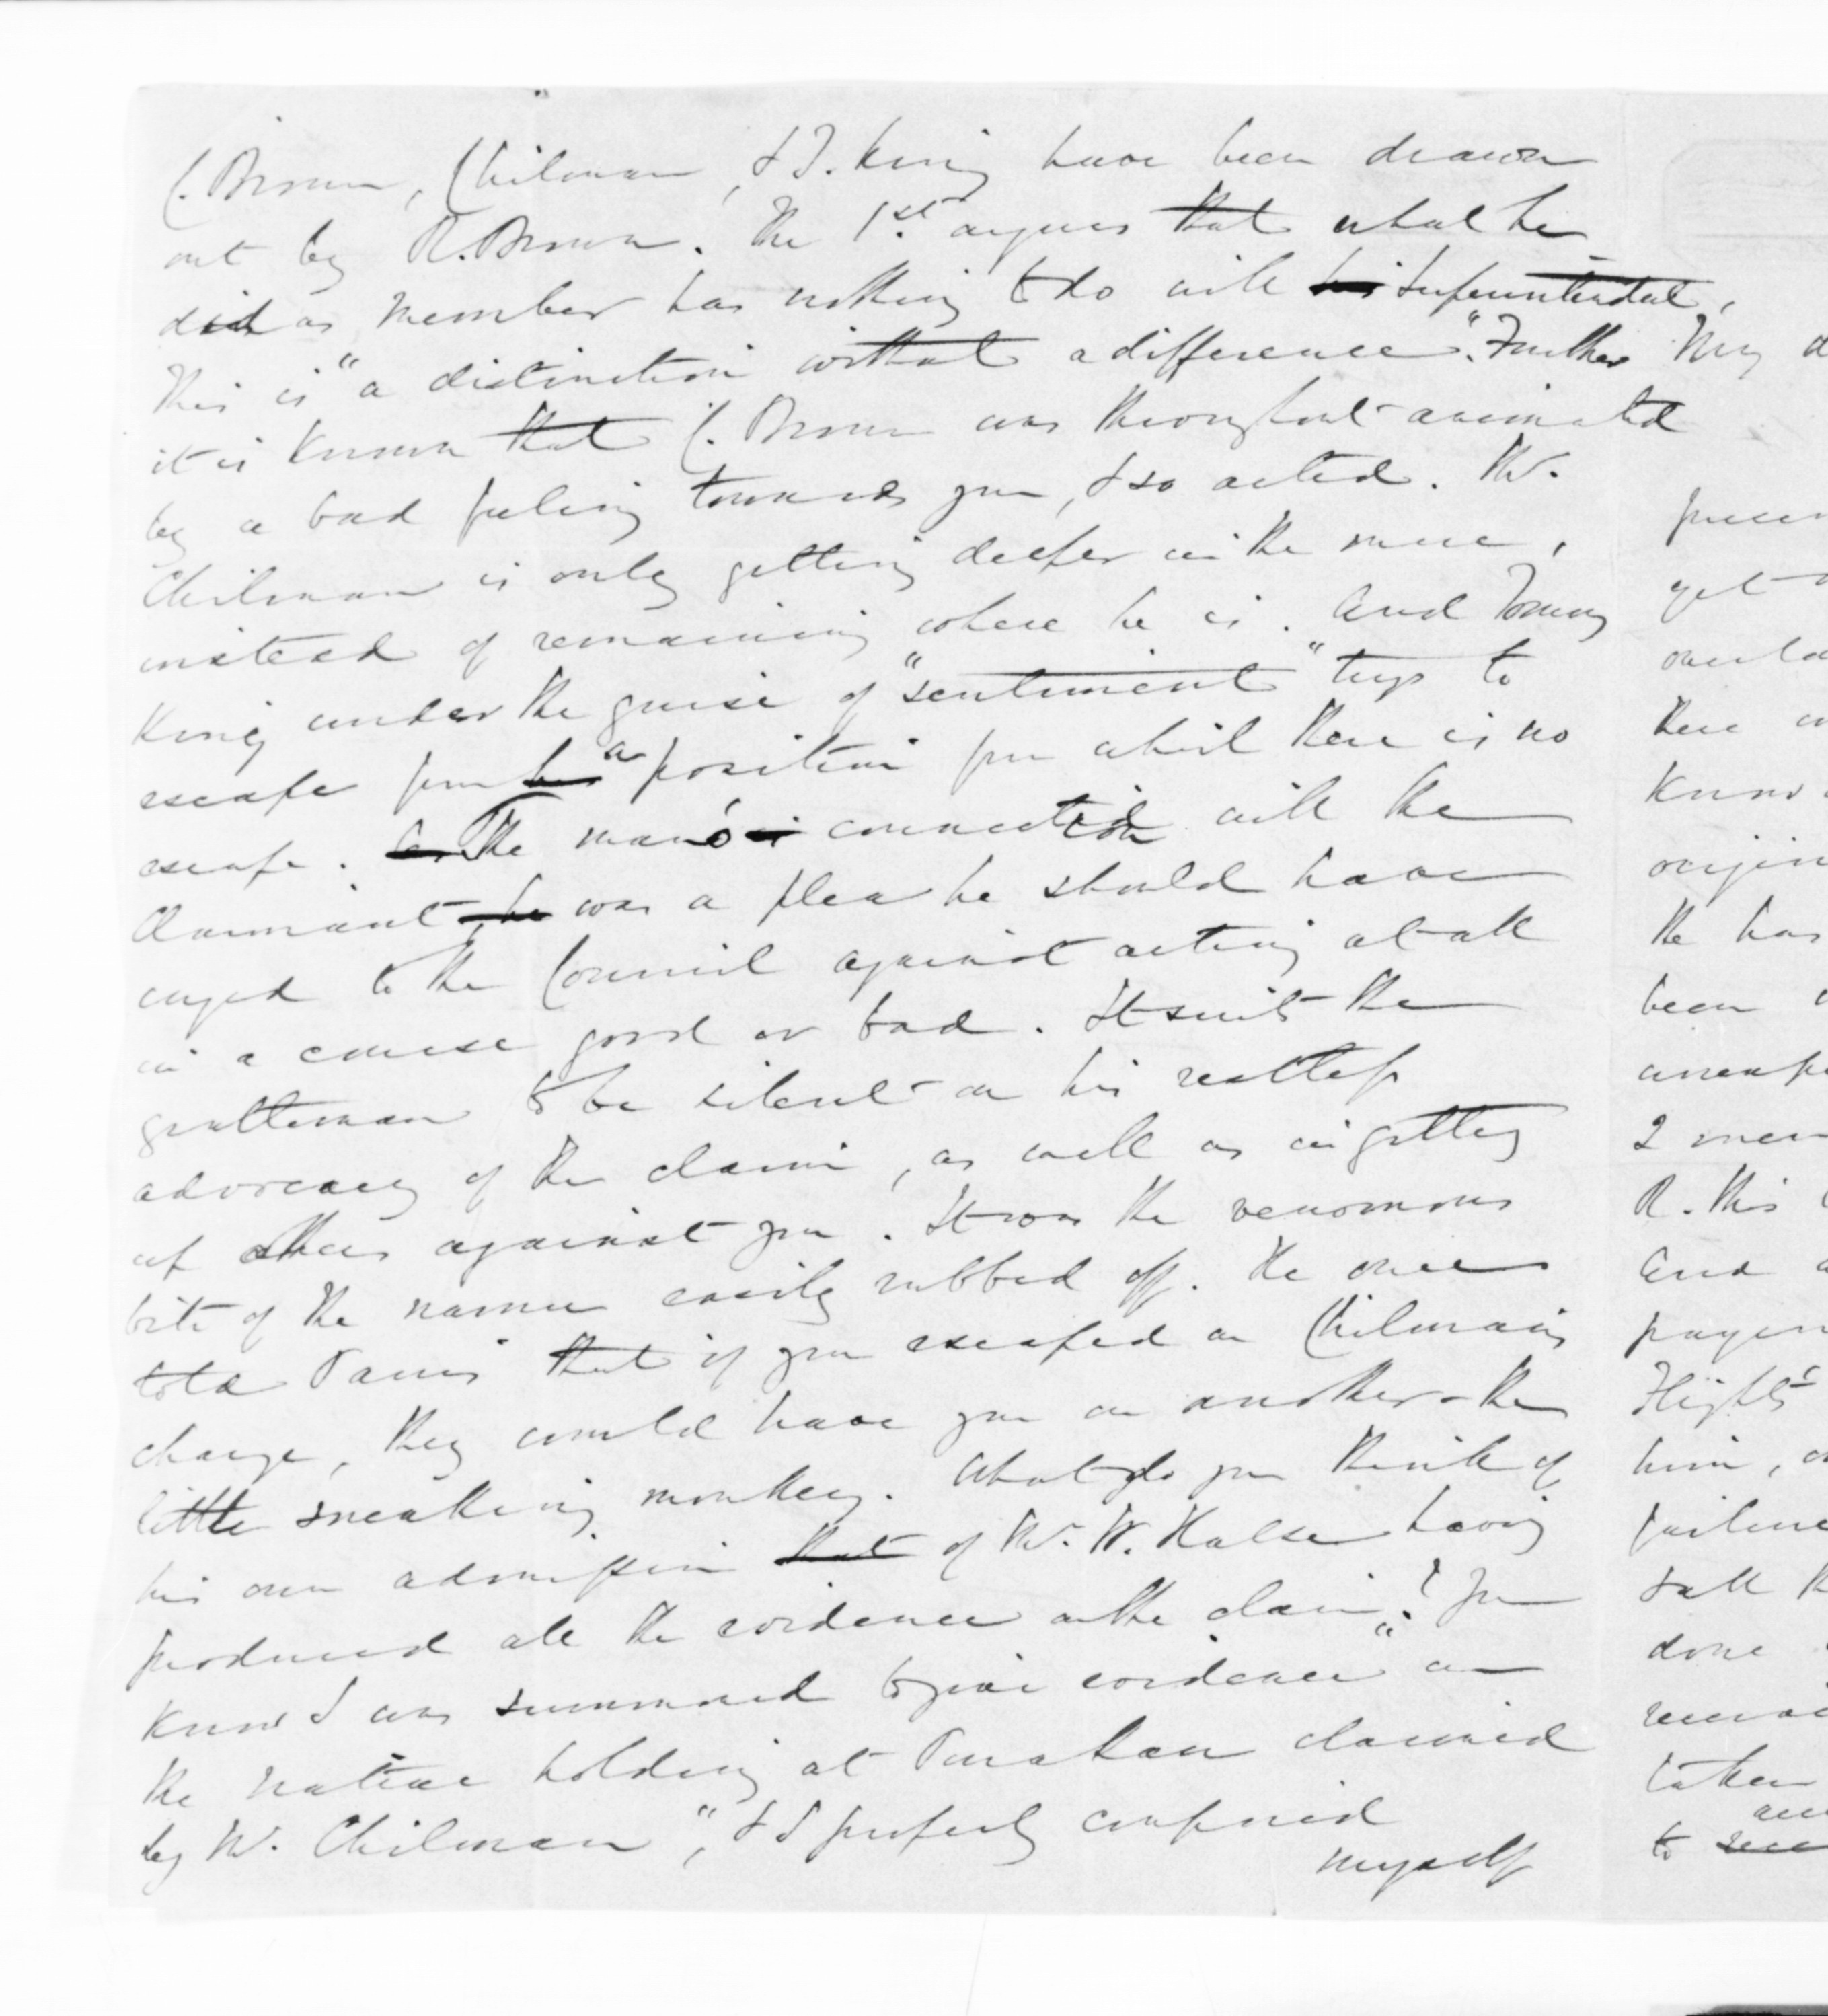 C. Brown, Chilman, & T. King have been drawn
out by R. Brown. The 1st. argues that what he
did as Member has nothing to do with his Superintendent,
this is "a distinction without a difference". Further
it is known that C. Brown was throughout animated
by a bad feeling towards you, & so acted. Mr.
Chilman is only getting deeper in the mire,
instead of remaining where he is. And Tommy
King under the guise of "sentiment" trys to
escape from a position from which there is no
escape. The man's connection with the
Claimant was a plea he should have
urged to the Council against acting at all
in a course good or bad. It suits the
gentleman to be silent on his restless
advocacy of the claim, as well as in getting
up others against you. It was the venomous
bite of the easily rubbed off. He once
told Parris that if you escaped on Chilman's
charge, they could have you on another - the
little sneaking monkey. What do you think of
his own admission of Mr. W. Halse having
produced all the evidence on the claim? You
know I was summoned to give evidence "on
the Native holding at Purakau claimed
by W. Chilman", & I properly confined
myself
My
presen
yet
there
know
origin
He has
been
unexpe
2 men
R. this
And
paymen
Flight's
him,
failure
& all
done
taken
to